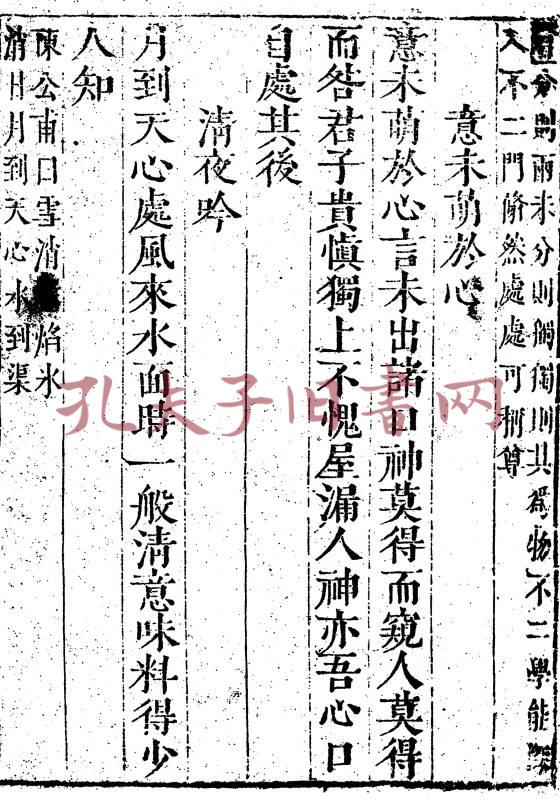 分則兩未分則獨獨則其爲物不二學能
入不二門脩然處處可稱尊
意未萌於心
意未萌於心言未出諸口神莫得而窺人莫得
而咎君子貴愼獨上不愧屋漏人神亦吾心口
自處其後
淸夜吟
月到天心處風來水面時一般淸意味料得少
人知
陳公甫曰雪消焰氷
消日月到天心水到渠
孔夫子旧书网